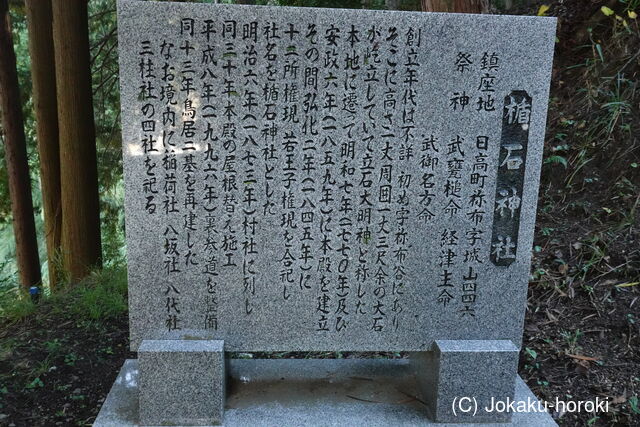 楯石神社
鎮座地　日高町祢布字城山四四六
祭神　武甕槌命　経津主命
武御名方命
創立年代は不詳　初め字祢布谷にあり
そこに高さ二丈周囲一丈三尺余の大石
が屹立していて立石大明神と称した
本地に遷って明和七年(一七七〇年)及び
安政六年(一八五九年)に本殿を建立
その間弘化二年(一八四五年)に
十二所権現　若王子権現を合祀し
社名を楯石神社とした
明治六年(一八七三年)村社に列し
同三十年本殿の屋根替え施工
平成八年(一九九六年)裏参道を整備
同十三年鳥居二基を再建した
なお境内に稲荷社　八坂社　八代社
三柱社の四社を祀る
(C) Jokaku-horoki